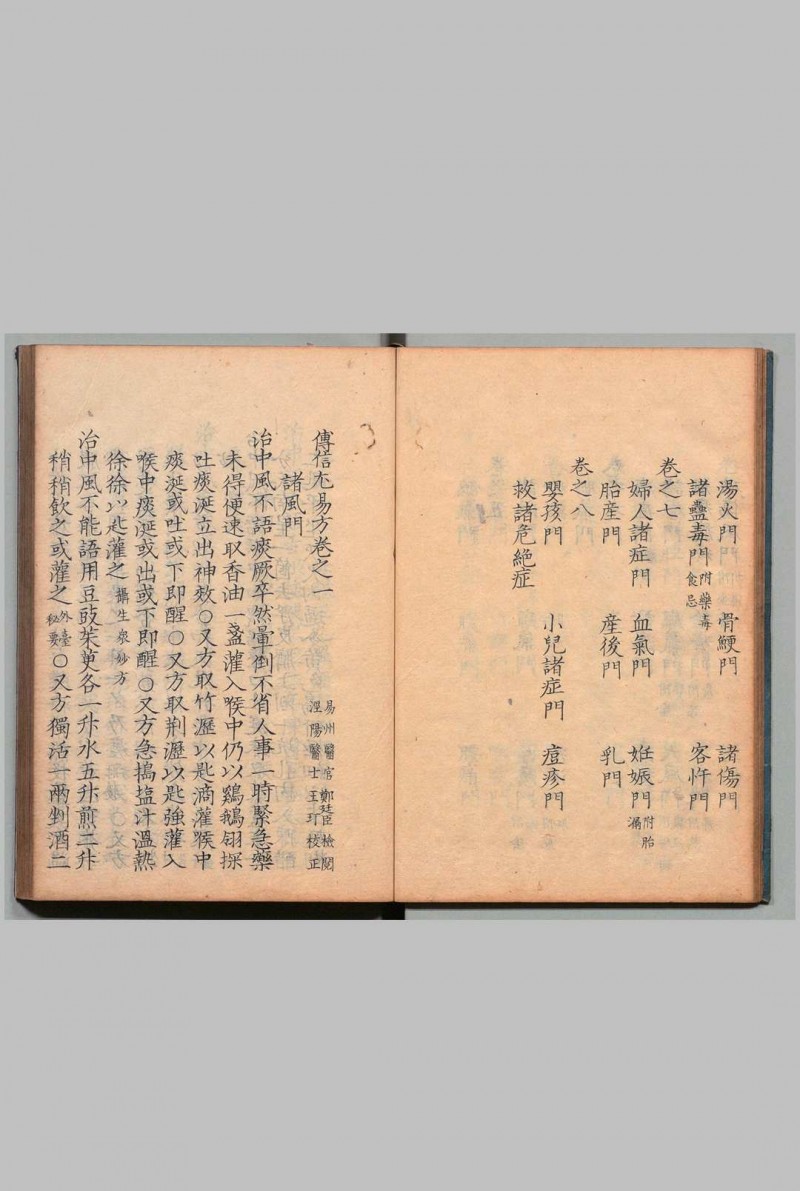 湯火門 骨鯁門 諸傷門
諸蠱毒門 附藥毒食忌 客忤門
卷之七
婦人諸症門 血氣門 妊娠門 附胎漏
胎產門 產後門 乳門
卷之八
嬰孩門 小兒諸症門 痘疹門
救諸危絕症
傳信尢易方卷之一
易州醫官鄭琹臣檢閱
涇陽醫士王玎校正
諸風門
治中風不語痰厥卒然暈倒不省人事一時緊急藥
未得便速取香油一盞灌入喉中仍以鷄鵝翎探
吐痰涎立出神効○又方取竹瀝以匙滴灌喉中
痰涎或吐或下即醒○又方取荆瀝以匙強灌入
喉中痰涎或出或下即醒○又方急搗塩汁溫熱
徐徐以匙灌之 攝生衆妙方
治中風不能語用豆豉茱萸各一升水五升煎二升
稍稍飲之或灌之 外臺秘要 ○又方獨活一兩剉酒二